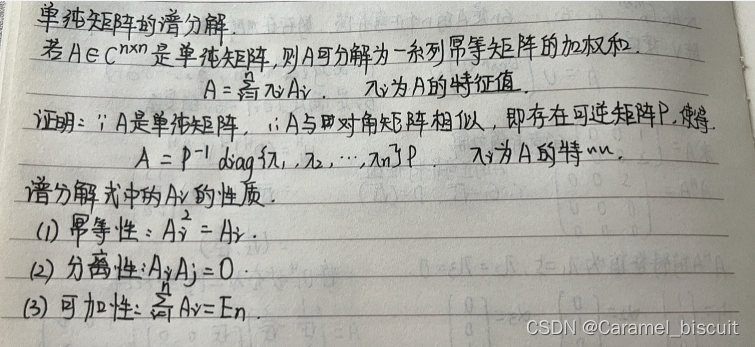 单纯矩阵的谱分解.
若A∈Cⁿˣⁿ是单纯矩阵,则A可分解为一系列幂等矩阵的加权和.
A=∑ⁿᵢ₌₁ λᵢAᵢ. λᵢ为A的特征值.
证明:∵A是单纯矩阵, ∴A与对角矩阵相似, 即存在可逆矩阵P,使得.
A=P⁻¹ diag{λ₁,λ₂,⋯,λn}P. λᵢ为A的特
谱分解式中的Aᵢ的性质.
(1) 幂等性:Aᵢ²=Aᵢ.
(2) 分离性:AᵢAⱼ=0.
(3) 可加性:∑ⁿᵢ₌₁ Aᵢ=En.
CSDN @Caramel_biscuit